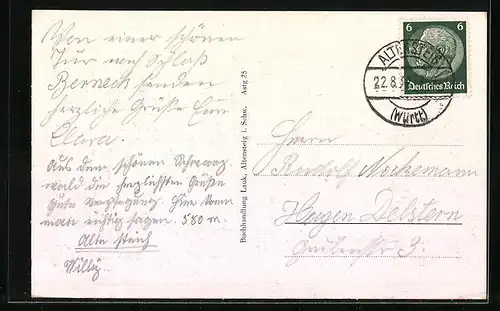 Von einer schönen
Tur nach Schloß
Berneck senden
herzliche Grüße Eure
Clara.
Aus dem schönen Schwarz
wald die herzlichsten Grüße
Gute Verpflegung. Hier kann
man richtig sagen. 580 m.
Alte
Willy.
Buchhandlung Lauk, Altensteig i. Schw. Astg 25
6 6
Deutsches Reich
ALTENSTEIG
22.8.3
(Württ)
Herrn
Rudolf Nockemann
Hagen Delstern
9.